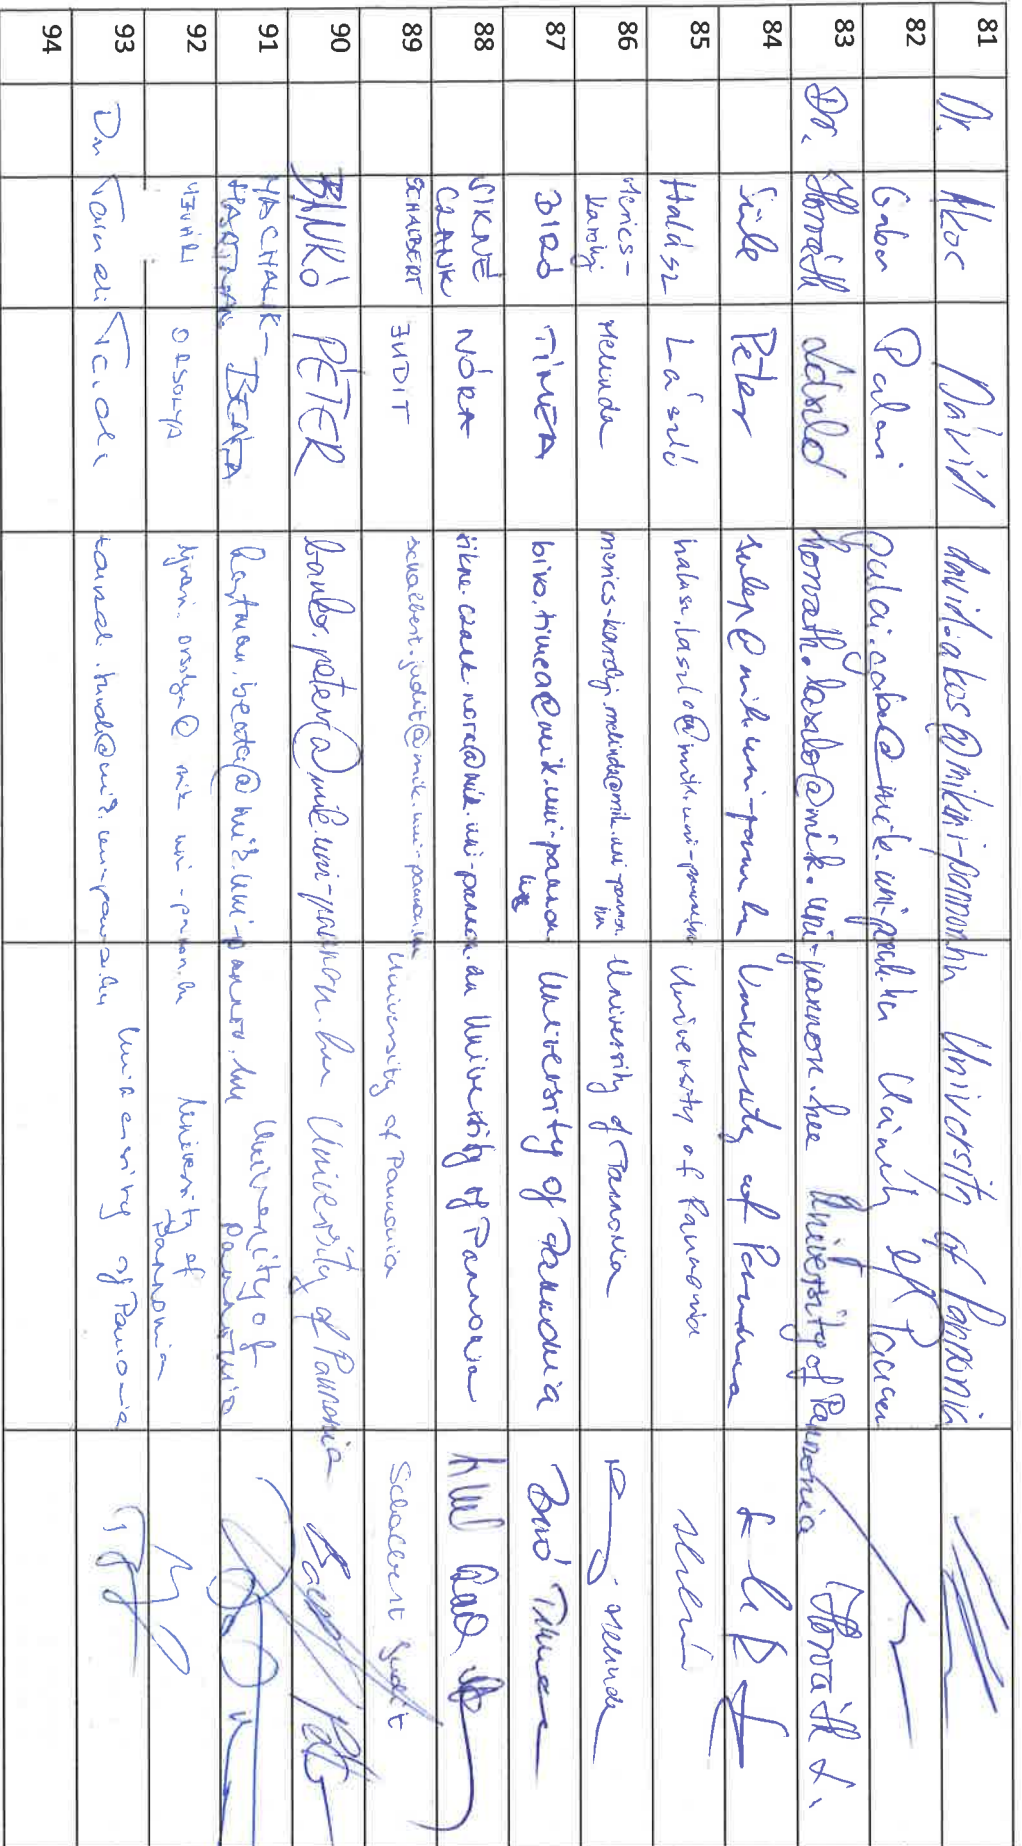 81 Dr. Ákos Dávid david.akos@mik.uni-pannon.hu University of Pannonia
82 Gabor Palani
83 Dr. Horváth László horvath.laszlo@mik.uni-pannon.hu University of Pannonia Horváth L.
84 Süle Péter sulep@mik.uni-pannon.hu University of Pannonia
85 Halász László halasz.laszlo@mik.uni-pannon.hu University of Pannonia
86 Merics-
Karolyi Melinda merics-karolyi.melinda@mik.uni-pannon.
hu University of Pannonia
87 BIRÓ TÍMEA biro.timea@mik.uni-pannon.
hu University of Pannonia Biró Tímea
88 SIKNÉ
CZANK NÓRA sikne.czank.nora@mik.uni-pannon.hu University of Pannonia
89 SCHALBERT JUDIT schalbert.judit@mik.uni-pannon.hu University of Pannonia Schalbert Judit
90 BANKÓ PÉTER banko.peter@mik.uni-pannon.hu University of Pannonia
91 MACHALIK-
BEÁTA hartman.beata@mik.uni-pannon.hu University of
Pannonia
92 ORSOLYA ujvari.orsolya@mik.uni-pannon.hu University of
Pannonia
93 Dr. Tarnai Tünde University of Pannonia
94